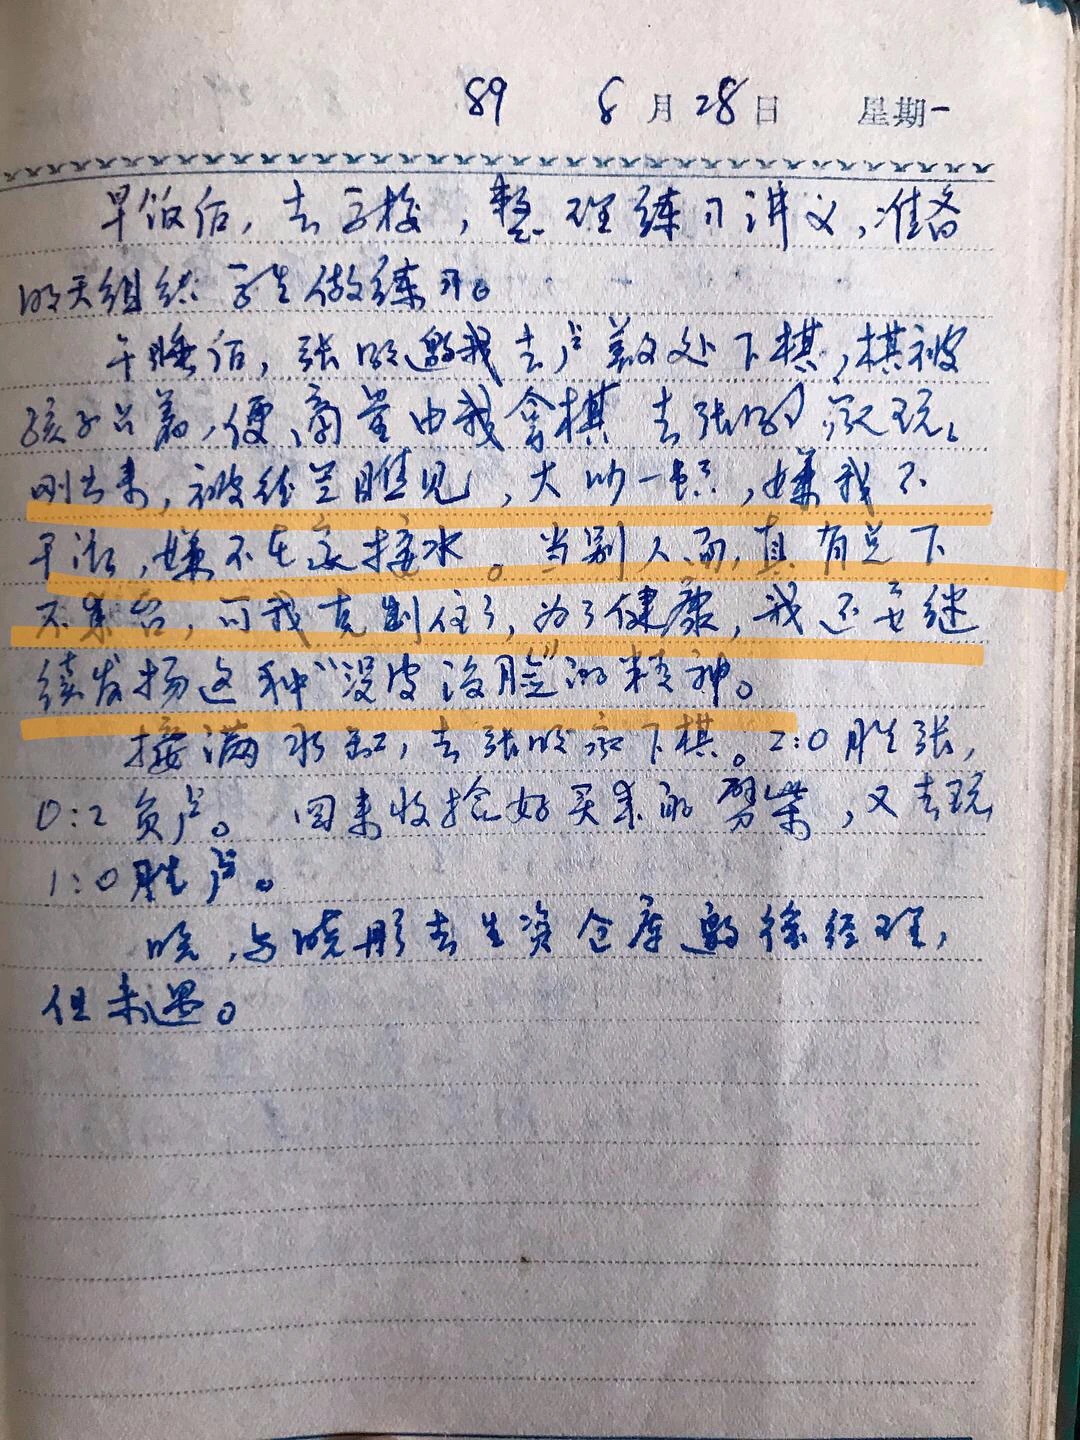 89 8月28日 星期一
早饭后，去学校，整理练习讲义，准备
明天组织学生做练习。
午睡后，张明邀我去卢义处下棋，棋被
孩子占着，便商量由我拿棋去张明家玩。
刚出来，被徐兰瞧见，大吵一顿，嫌我不
干活，嫌不在家接水。当别人面，真有点下
不来台，可我克制住了，为了健康，我还要继
续发扬这种“没皮没脸”的精神。
接满水缸，去张明家下棋。2:0胜张，
0:2负卢。回来收拾好买来的劈柴，又去玩
1:0胜卢。
晚，与晓彤去生资仓库邀徐经理，
但未遇。